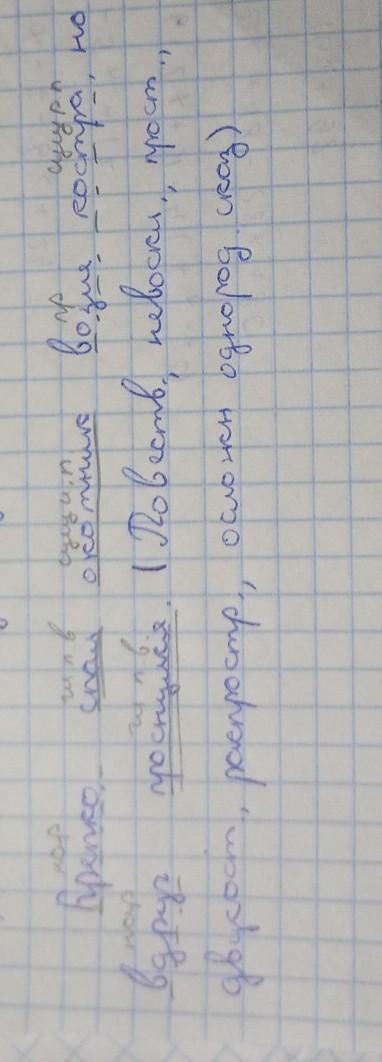 нар гл п.в сущ и.п пр сущ р.п
Крепко спал охотник возле костра, но
нар гл п.в.
вдруг проснулся. (Повеств., невоскл., прост.,
двусост., распростр., осложн однород. сказ)